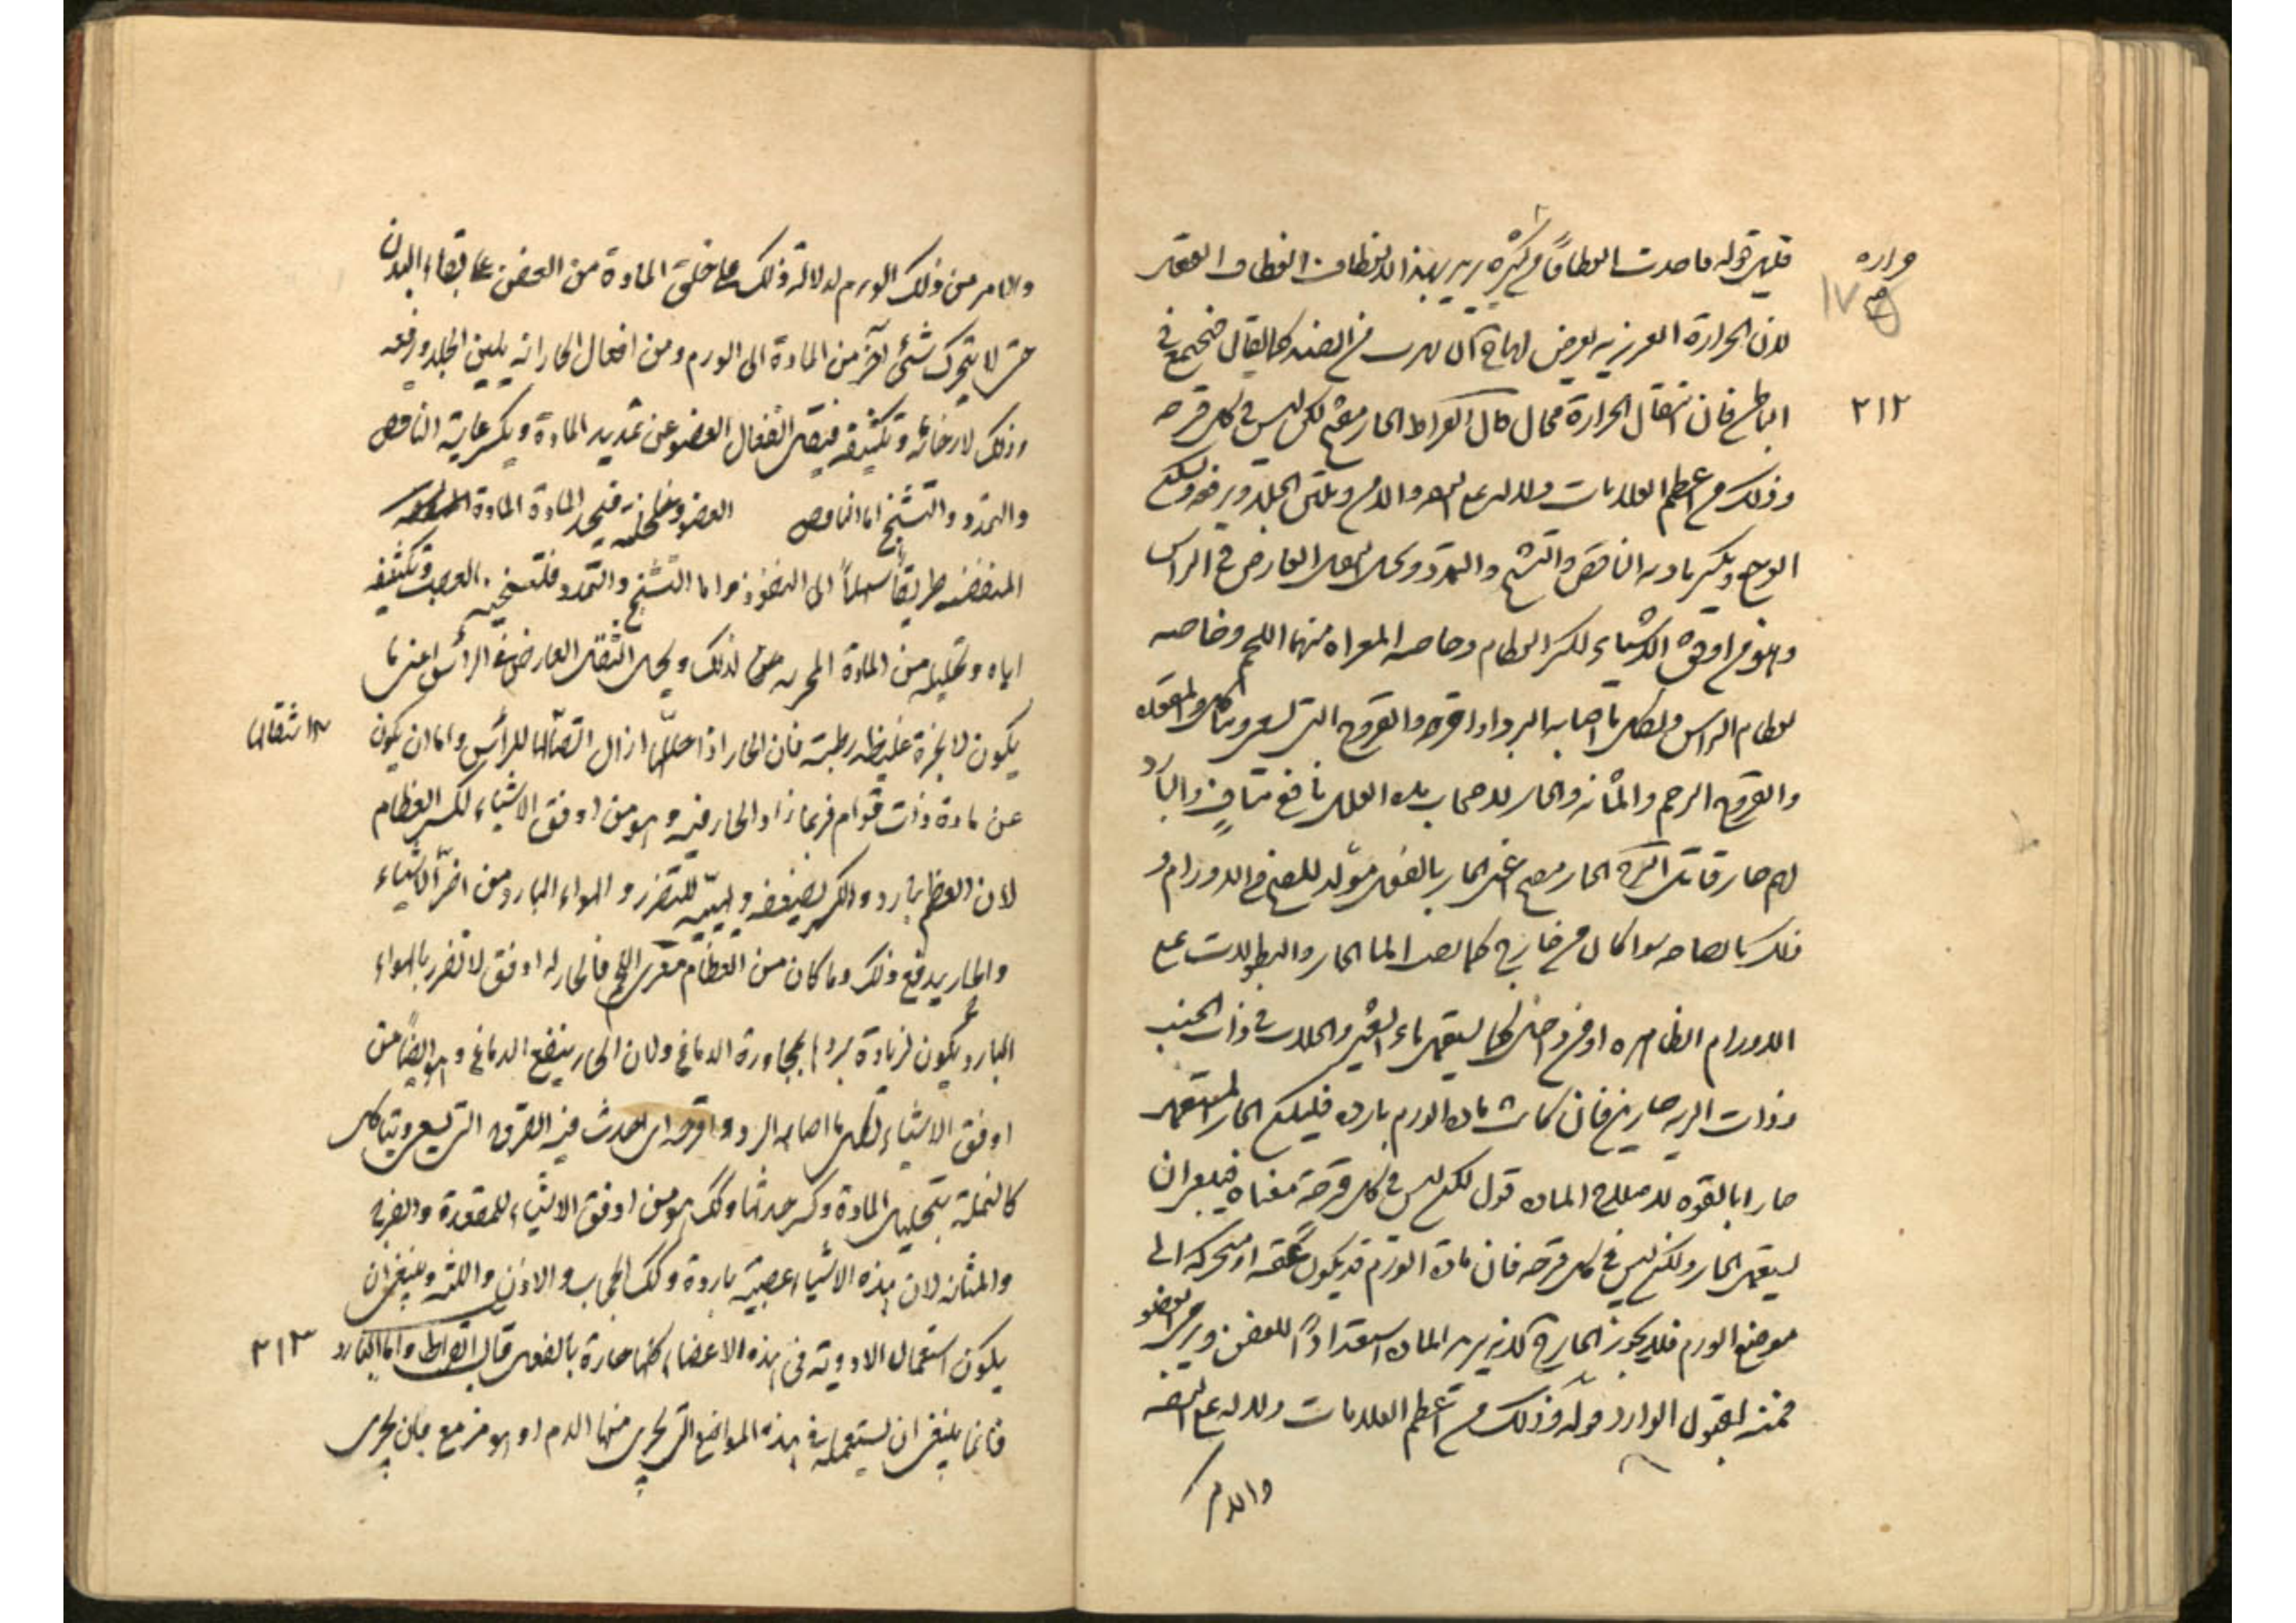 قوله فاحدث انعطافا من كثرة يريد بهذا الانعطاف انعطاف
حراره
صح
١٧
لان الحرارة الغريزية يعرض لها ان تهرب من الضد كما يقال فتجتمع في
٢١٢
الباطن فان انتقال الحرارة محال قال ابقراط الحار مقيح لكن ليس في كل قرحة
وذلك من اعظم العلامات دلالة على والامن ويلين الجلد ويرققه ويسكن
الوجع ويكسر عادية النافض والتشنج والتمدد ويحل الثقل العارض في الراس
وهو من اوفق الاشياء لكسر العظام وخاصة المعراه منها اللحم وخاصه
لعظام الراس ولكل ما اصابه البرد او اقرحه والقروح التي تسعى وتتاكل والمقعدة
والقروح الرحم والمثانه والحار لاصحاب هذه العلل نافع شاف والبارد
لهم ضار قاتل الحار مقيح اعنى الحار بالفعل مولد للقيح في الاورام و
ذلك بانضاجه سوا كان من خارج كما يصب الما الحار والنطولات على
الاورام الظاهره او من داخل كما يستعمل ماء الشعير والجلاب في ذات الجنب
وذات الريه حارين فان كانت مادة الورم بارده فليكن الحار المستعمل
حارا بالقوه قوله لكن ليس في كل قرحة معناه فينبغي ان
يستعمل الحار ولكن ليس في كل قرحه فان مادة الورم قد يكون عفنه او متحركه الى
موضع الورم فلا يجوز الحار لانه يزيد المادة استعدادا للعفن ويرخي العضو
فيتهيا لقبول الوارد قوله وذلك من اعظم العلامات دلالة على الثقة
والامن
والامن من ذلك الورم لدلالة ذلك على خلو المادة من العفن على نقاء البدن
حتى لا يتحرك شئ آخر من المادة الى الورم ومن افعال الحار انه يلين الجلد ويرققه
وذلك لارخائه وتكثيفه فيقل انفعال العضو عن تمديد المادة ويكسر عادية النافض
والتمدد والتشنج اما النافض العضو فتجد المادة المادة
المنفضه طريقا سهلا الى النفوذ واما التشنج والتمدد فلتسخينه العصب وتكثيفه
اياه وتحليله من المادة لذلك ويحل الثقل العارض في الرأس اعنى ما
يكون لابخرة غليظه رطبة فان الحار اذا حللها ازال اثقالها للرأس واما ان يكون
اثقالها
عن مادة ذات قوام فربما زاد الحار فيه وهو من اوفق الاشياء لكسر العظام
لان العظم بارد والكسر يضعفه ويهيئه للتضرر والهواء البارد من اضر الاشياء
والحار يدفع ذلك وما كان من العظام معرى اللحم فالحار له اوفق لا تضرر بالهواء
البارد يكون لزيادة بردها بمجاورة الدماغ ولان الحار ينفع الدماغ وهو ايضا من
اوفق الاشياء لكل ما اصابه البرد واقرحه اى احدث فيه القروح التي تسعى وتتاكل
كالنملة بتحليل المادة وكسر حدتها وكك هو من اوفق الاشياء للمقعدة والفرج
والمثانه لان هذه الاشياء عصبية باردة وكك الحجاب والاذن واللثة وينبغى ان
يكون استعمال الادوية في هذه الاعضاء كلها حارة بالفعل قال ابقراط واما البارد
٢١٣
فانما ينبغى ان يستعمله في هذه المواضع التي يجرى منها الدم او هو مزمع بان يجرى